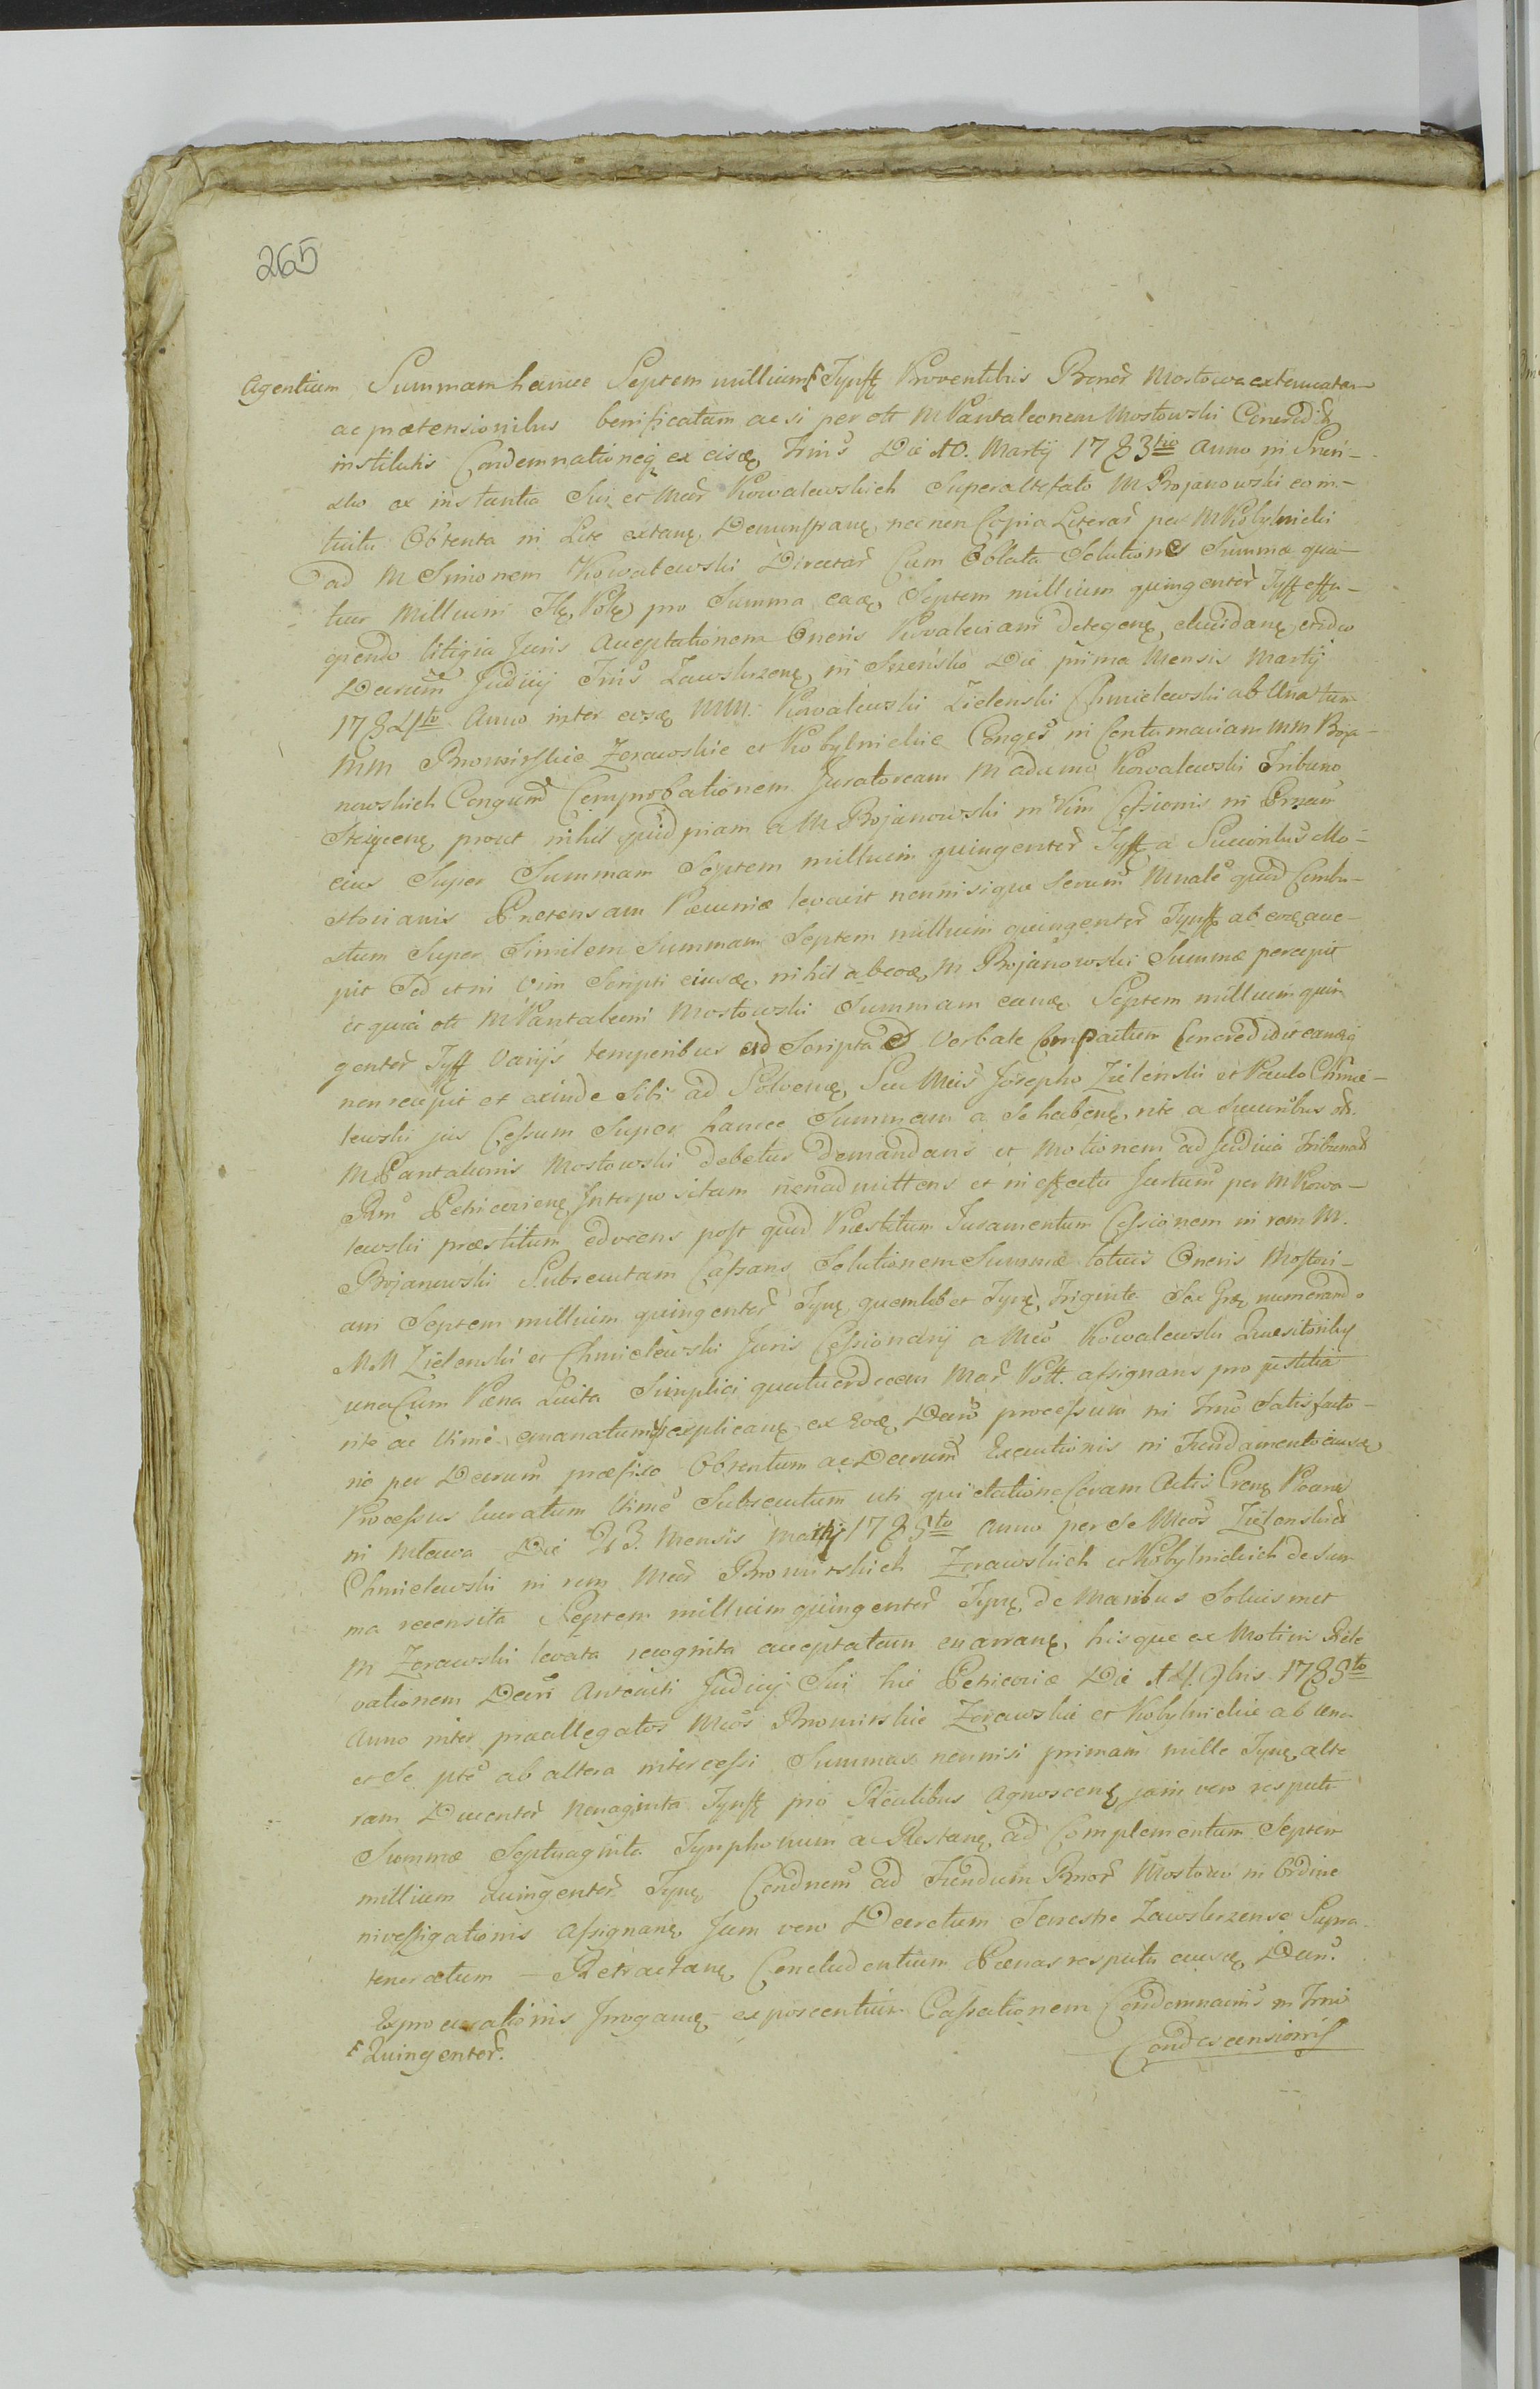 265
Agentium Summam hancce Septem millium Tynff Proventibus Bonor Mostowo extenuatam
ac prætensionibus bonificatam ac si per olt M Pantaleonem Mostowski
institutis Condemnationeq ex eisdę Trris Die 10. Martij 1783tio Anno in Sreń-
sko ex instantia Sui et Mcor Kowalewskich Superaltefato M Bojanowski com-
Obtenta in Lite extanę, Demonstranę, necnon Copia Literar per M Kobylnicki
ad M Simonem Kowalewski Directar Cum Oblata Solutiones Summæ qua-
tuor Millium Flę, Polę pro Summa eadę, Septem millium quingentor Tyff
litigia Juris Acceptationem Oneris Kowaleviani detegenę, elucidanę,
Decrum Judicij Trris Zawskrzenę, in Sreńsko Die prima Mensis Martij
1784to Anno inter eosdę MM. Kowalewski Zielenski Chmielewski ab Una tum
MM Bromirskie Zerawskie et Kobylnickie Congos in Contumaciam MM Boja-
nowskich Comprobationem Juratoream M Adamo Kowalewski Tribuno
prout nihil quid piam a M Bojanowski in Vim Cessionis in
eius Super Summam Septem millium quingentor Tyff a Succoribus Mo-
stovianis Prætensam Pecuniæ levavit nonnisique Scrum Mnale quod Combu-
stum Super Similem Summam Septem millium quingentor Tynff ab eodę acce-
pit Sed et in Vim Scripti eiusdę, nihil ab eodę, M Bojanowski Summæ percepit
et quia olt M Pantaleoni Mostowski Summam eandę, Septem millium quin
gentor Tyff Varijs temporibus ad Scripta et Verbale Compactum Concredidit eamq
non recepit et exinde Sibi ad Solvenę, Seu Mcis Josepho Zielenski et Paulo Chmie-
lewski jus Cessum Super hancce Summam a Se habenę, rite a Succoribus olt
M Pantaleonis Mostowski debetur demandans et Motionem ad Judicia Tribunal
Pum Petricovienę, Interpositam non admittens et in effectu Jurtum per M Kowa-
lewski præstitum edocens post quod Præstitum Juramentum Cessionem in rem M.
Bojanowski Subsecutam Cassans Solutionem Summæ totius Oneris Mostovi-
ani Septem millium quingentor Tynę, quemlibet Tynę, Triginta Sex Grę numerando
MM Zielenski et Chmielewski Juris Cessionarij a Mco Kowalewski Quæsitoribus
una Cum Pæna Luita Simplici quatuordecem Mar Poll. assignans pro justitia
rite ac ltime emanatum explicanę, ex eodę Dcro processum in Trno Satisfacto-
rio per Decrum præfixo Obtentum ac Decrum Executionis in Fundamento eiusdę
Processus lucratum ltime Subsecutum uti quietatione Coram Actis Crenę Plcanę
in Mlawa Die 23. Mensis Martij 1785to Anno per Se Mcos Zielenski et
Chmielewski in rem Mcor Bromirskich Zerawskich et Kobylnickich de Sum
ma recensita Septem millium quingentor Tynę, de Manibus Solius met
M Zerawski levata recognita acceptatum enarranę, hisque ex Motivis Rele
vationem Decri Anteacti Judicij Sui hic Petricoviæ Die 14. 9bris 1785to
Anno inter præallegatos Mcos Bromirskie Zerawskie et Kobylnickie ab una
et Se pte ab altera intercessi Summas nonnisi primam mille Tynę, alte
ram Ducentor Nonaginta Tynff pro Realibus Agnoscenę, jam vero respectu
Summæ Septuaginta Tynphonum ac Restanę, ad Complementum Septem
millium Quingentor Tynę, Condnem ad Fundum Bonor Mostowo in Ordine
investigationis Assignanę, Jam vero Decretum Terrestre Zawskrzense Supra
teneratum – Retractanę, Concludentium Pænas respectu eiusdę, Decri
Exprocurationis Irroganę, exposcentium Cassationem Condemnaonis in Trno
F Quingentor.
Condescensionis